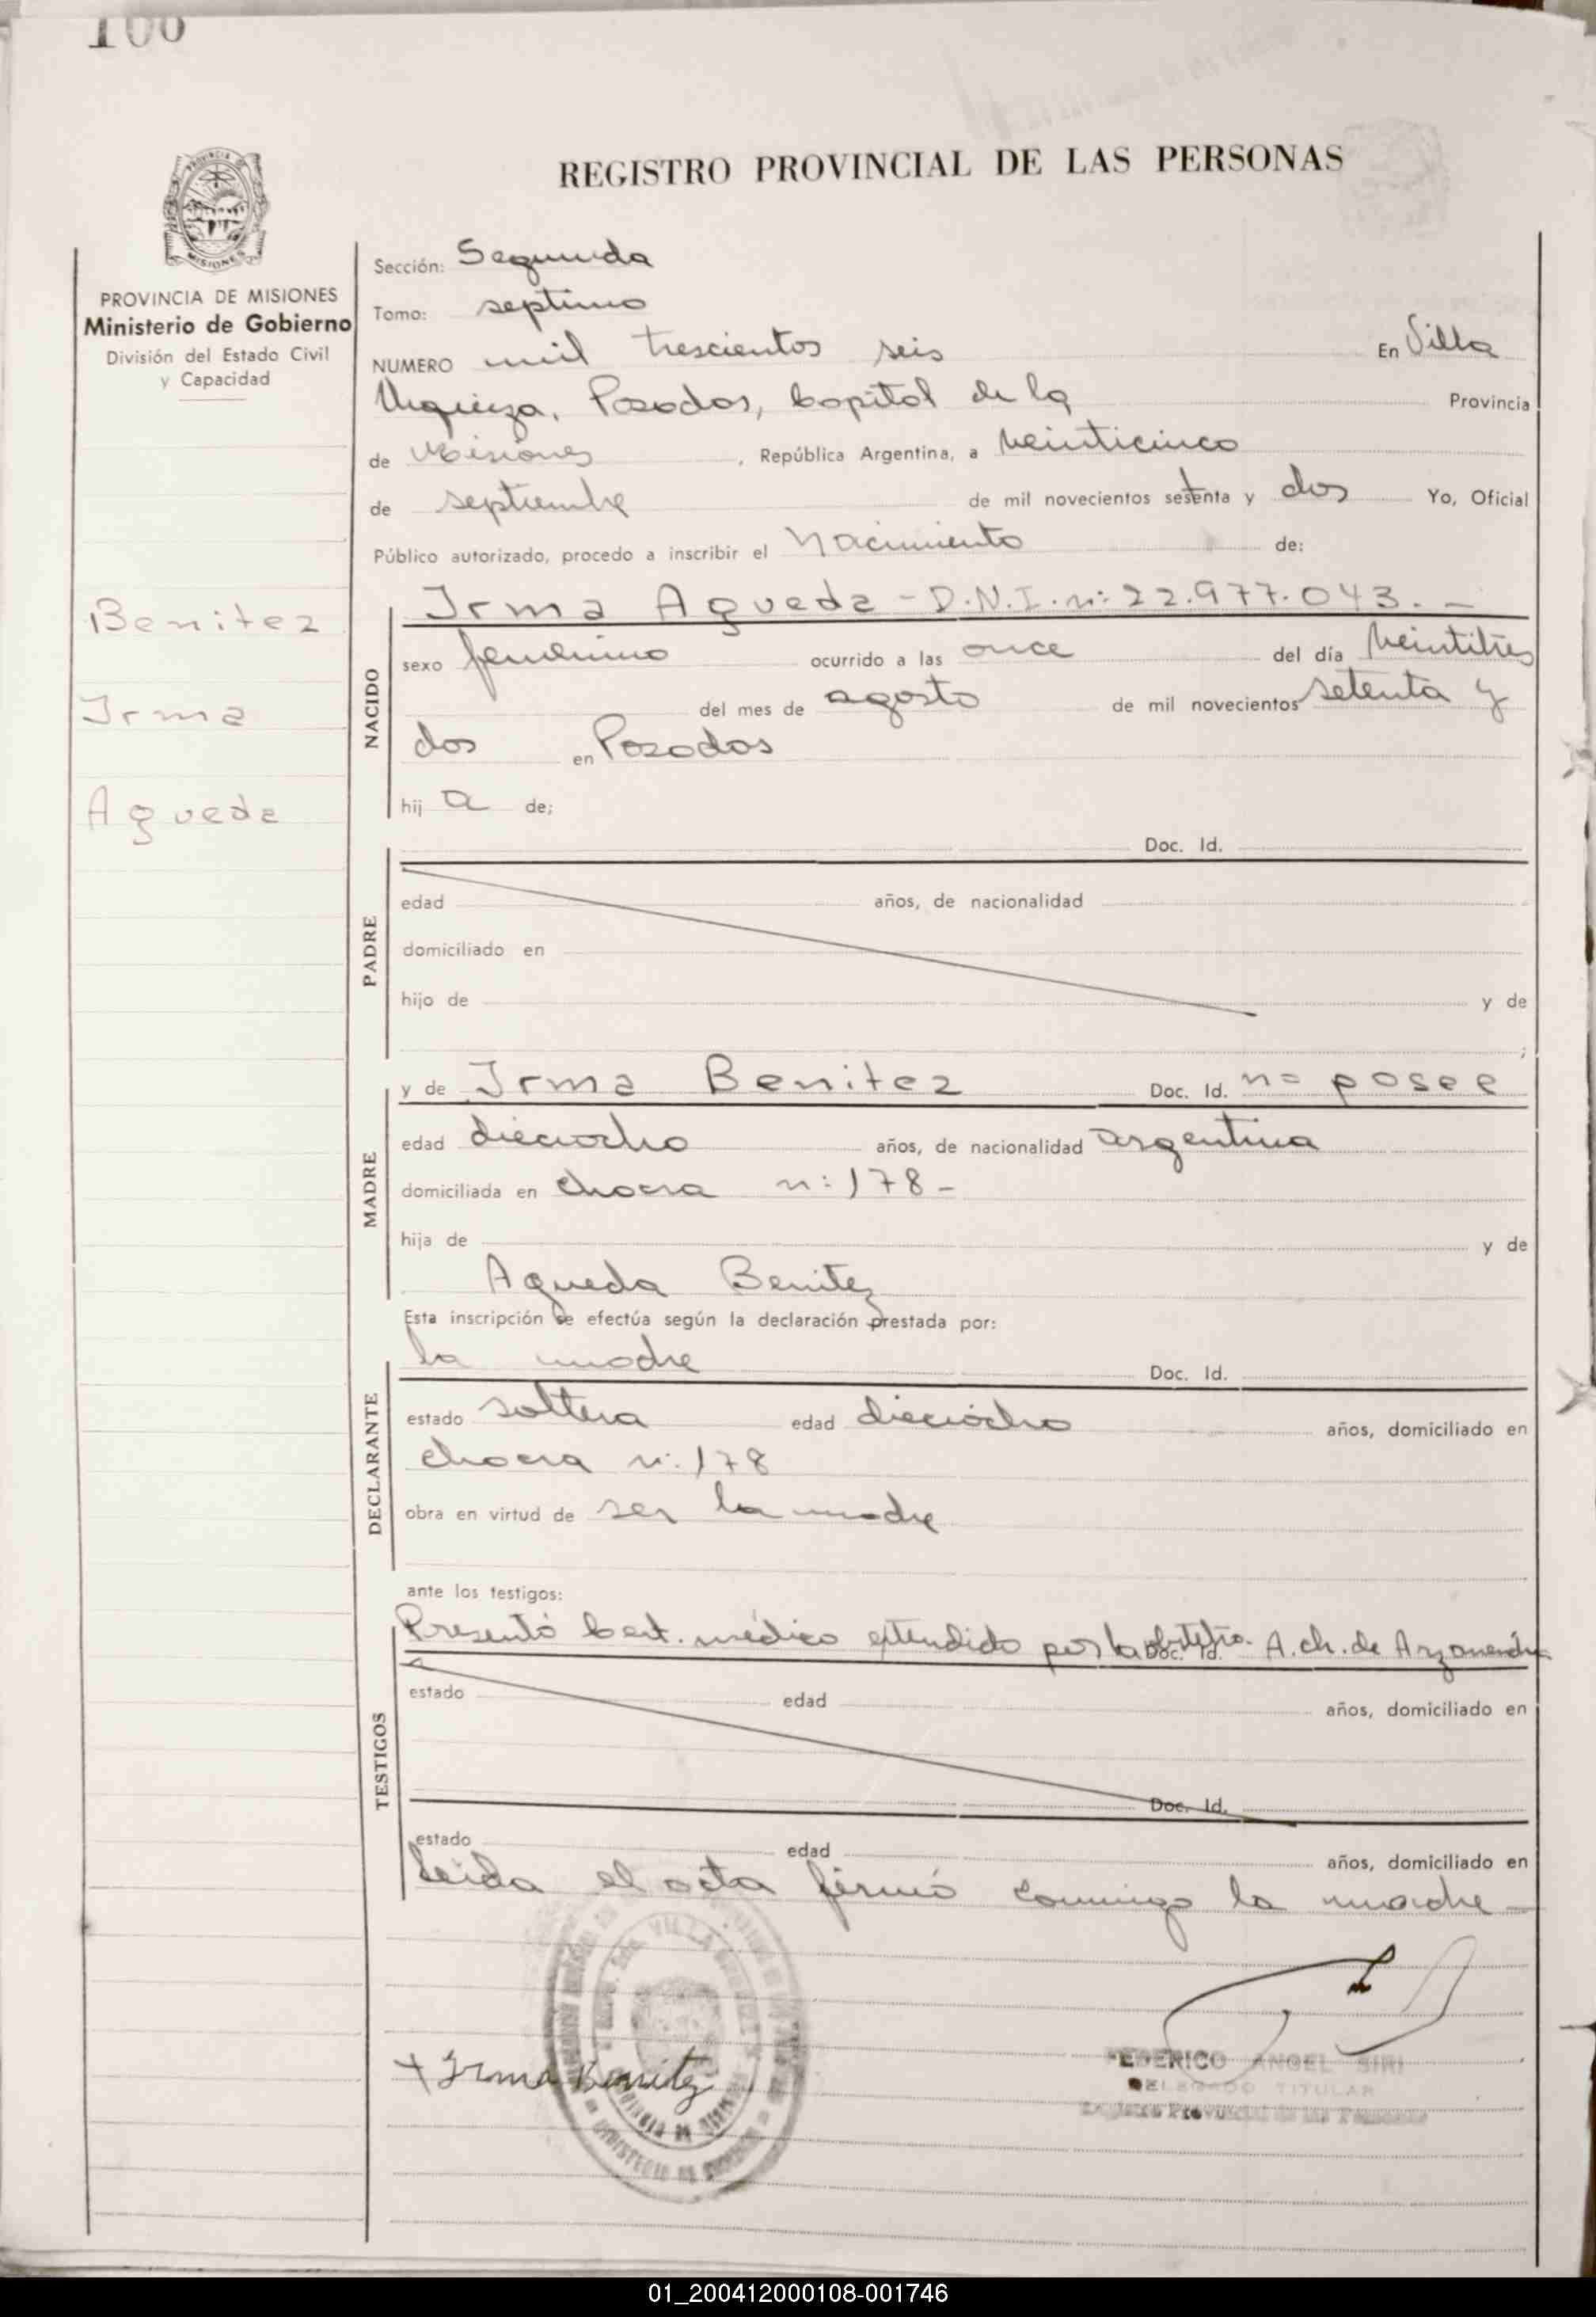 100
REGISTRO PROVINCIAL DE LAS PERSONAS
MISIONES
PROVINCIA DE MISIONES
Ministerio de Gobierno
División del Estado Civil
y Capacidad
Benitez
Irma
Agueda
Sección: Segunda
Tomo: septimo
NUMERO mil trescientos seis En Villa
Urquiza, Posadas, Capital de la Provincia
de Misiones, República Argentina, a veinticinco
de septiembre de mil novecientos setenta y dos Yo, Oficial
Público autorizado, procedo a inscribir el Nacimiento de:
NACIDO
Irma Agueda - D.N.I. nº: 22.977.043. -
sexo femenino ocurrido a las once del día veintitres
del mes de agosto de mil novecientos setenta y
dos en Posadas
hij a de;
PADRE
Doc. Id.
edad años, de nacionalidad
domiciliado en
hijo de y de
;
MADRE
y de Irma Benitez Doc. Id. no posee
edad dieciocho años, de nacionalidad argentina
domiciliada en chacra n: 178 -
hija de y de
Agueda Benitez
Esta inscripción se efectúa según la declaración prestada por:
DECLARANTE
la madre Doc. Id.
estado soltera edad dieciocho años, domiciliado en
chacra n: 178
obra en virtud de ser la madre
ante los testigos:
TESTIGOS
Presentó Cert. médico extendido por la Doc. Id. A. ch. de
estado edad años, domiciliado en
Doc. Id.
estado edad años, domiciliado en
Leida el acta firmó conmigo la madre -
+ Irma Benitez
FEDERICO ANGEL SIRI
DELEGADO TITULAR
Registro Provincial de las Personas
01_200412000108-001746